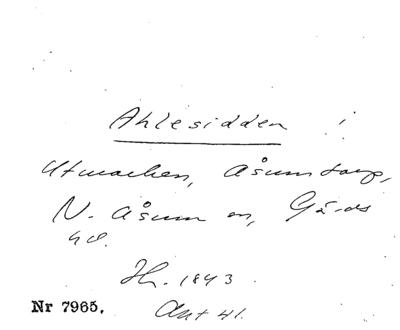 Ahlesidden
Utmarken, Åsumtorp,
N. Åsum sn, Gärds
hd.
Jh. 1843.
Nr 7965. Akt 41.